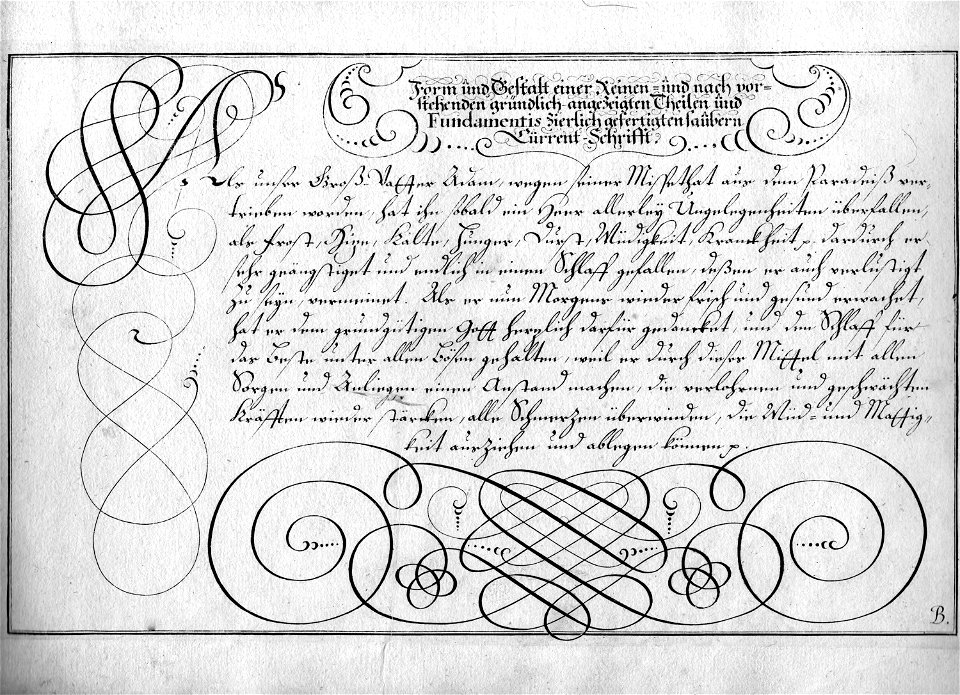 Form und Gestalt einer Reinen- und nach vor-
stehenden gründlich angezeigten Theilen und
Fundamentis zierlich gefertigten saübern
Cürrent-Schrifft.
Als unser Groß-Vatter Adam, wegen seiner Missethat aus dem Paradeiß ver-
trieben worden, hat ihn sobald ein Heer allerley Ungelegenheiten überfallen,
als Frost, Hitze, Kälte, Hunger, Dürst, Müdigkeit, Kranckheit p. dardurch er
sehr geängstiget und endlich in einen Schlaff gefallen, deßen er auch verlustigt
zu seyn, vermeinet. Als er nun Morgens wieder frisch und gesund erwachet,
hat er dem grundgütigen Gott hertzlich darfür gedancket, und den Schlaff für
das Beste unter allen Bösen gehalten, weil er durch dieses Mittel mit allen
Sorgen und Anliegen einen Anstand machen, die verlohrnen und geschwächten
Kräfften wieder stärcken, alle Schmerzen überwinden, die Müd- und Mattig-
keit ausziehen und ablegen können p.
B.